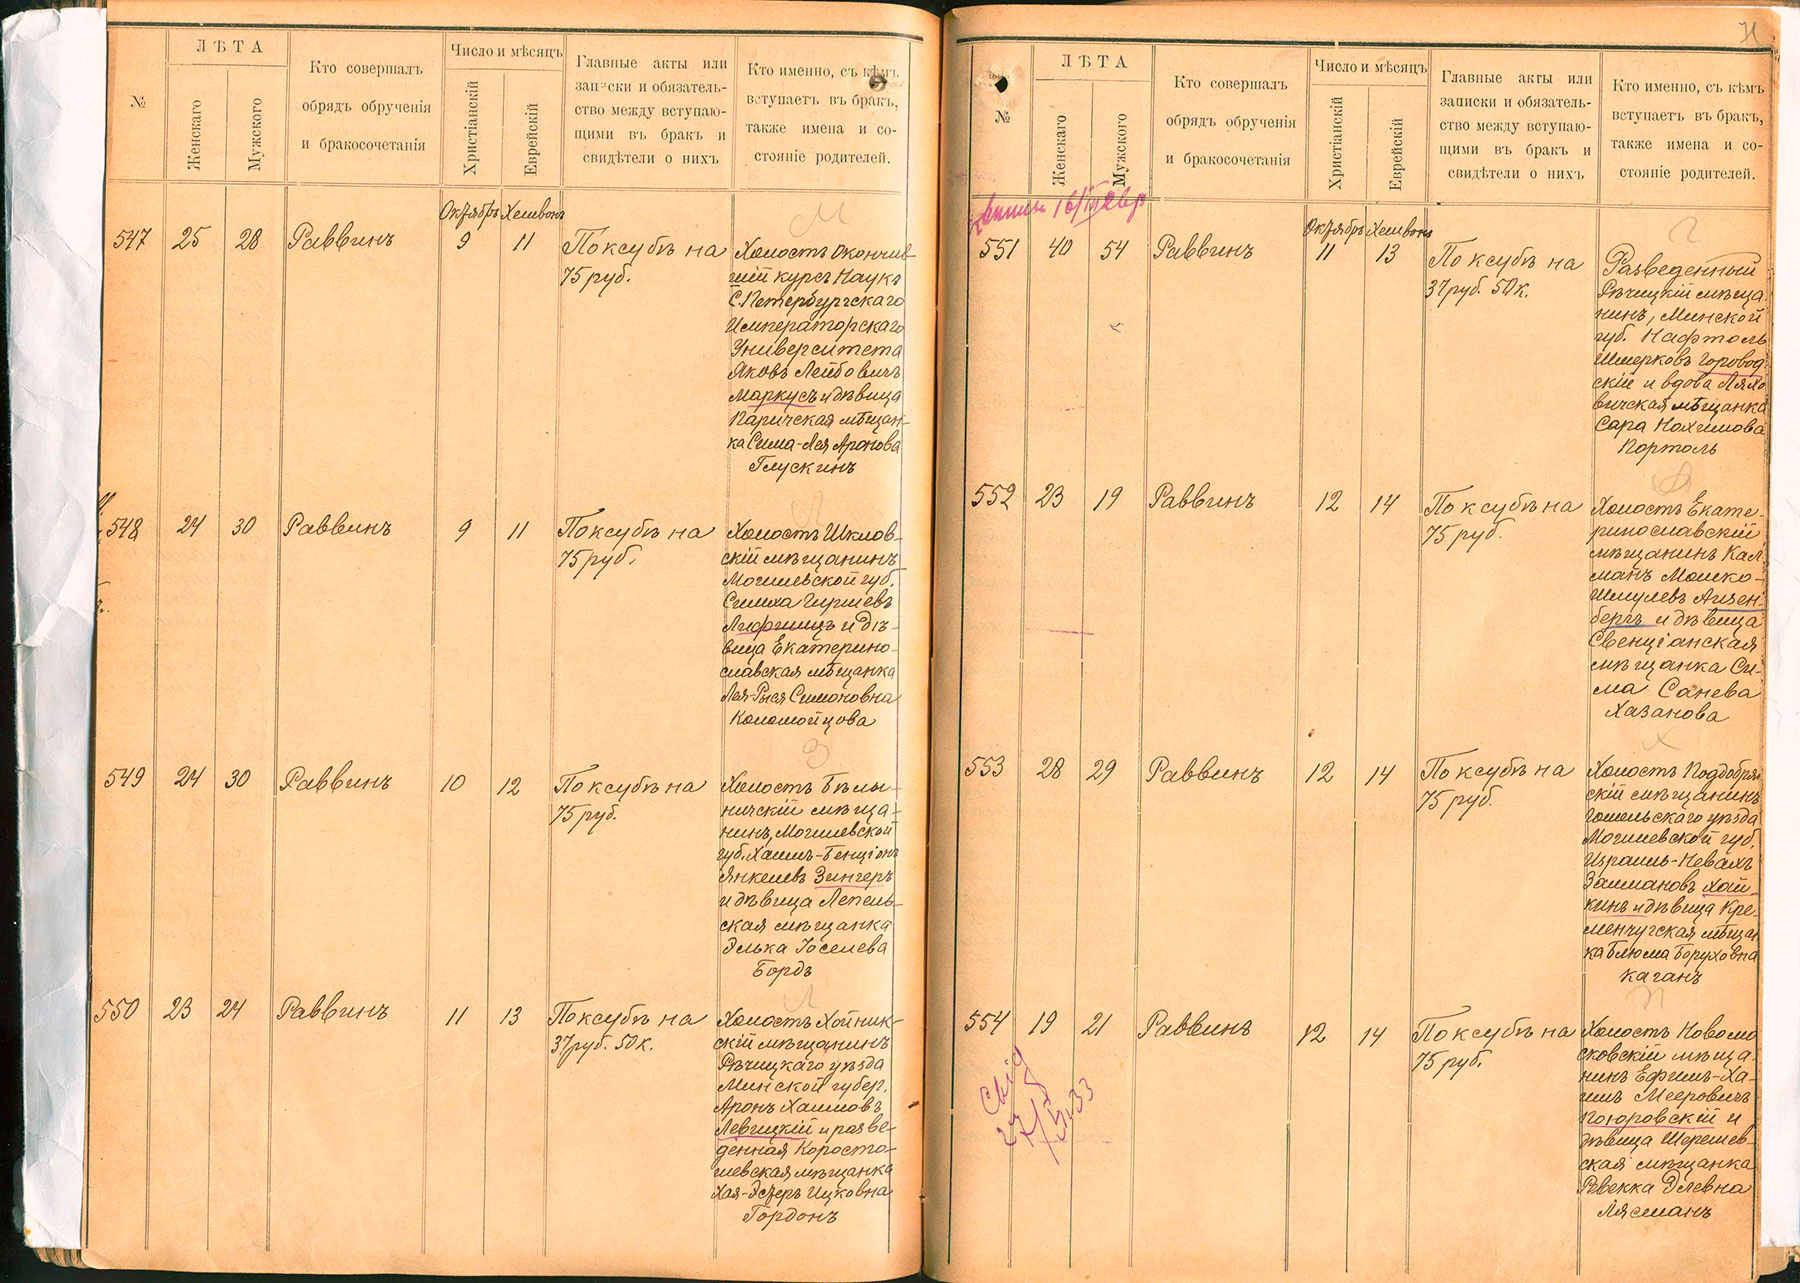 №
ЛѢТА
Женскаго
Мужского
Кто совершалъ
обрядъ обрученія
и бракосочетанія
Число и мѣсяцъ
Христіанскій
Еврейскій
Главные акты или
записки и обязатель-
ство между вступаю-
щими въ бракъ и
свидѣтели о нихъ
Кто именно, съ кѣмъ
вступаетъ въ бракъ,
также имена и со-
стояніе родителей.
Октябрь Хешвонъ
547 25 28 Раввинъ 9 11
По ксубѣ на
75 руб.
Холостъ Окончив-
шій курсъ Наукъ
С.Петербургскаго
Императорскаго
Университета
Яковъ Лейбовичъ
Маркусъ и дѣвица
Паричская мѣщан-
ка Сима-Лея Аронова
Глускинъ
548 24 30 Раввинъ 9 11
По ксубѣ на
75 руб.
Холостъ Шклов-
скій мѣщанинъ
Могилевской губ.
Симха Гиршевъ
Лифшицъ и дѣ-
вица Екатерино-
славская мѣщанка
Лея-Рыся Симоновна
Коломойцова
549 24 30 Раввинъ 10 12
По ксубѣ на
75 руб.
З
Холостъ Бѣлы-
ничскій мѣща-
нинъ, Могилевской
губ. Хаимъ-Бенціонъ
Янкелевъ Зингеръ
и дѣвица Лепель-
ская мѣщанка
Элька Іоселева
Бордъ
550 23 24 Раввинъ 11 13
По ксубѣ на
37 руб. 50 к.
Холостъ Хойник-
скій мѣщанинъ
Рѣчицкаго уѣзда
Минской губер.
Аронъ Хаимовъ
Левицкій и разве-
денная Коросто-
шевская мѣщанка
Хая-Эсѳеръ Ицковна
Гордонъ
№
ЛѢТА
Женскаго
Мужского
Кто совершалъ
обрядъ обрученія
и бракосочетанія
Число и мѣсяцъ
Христіанскій
Еврейскій
Главные акты или
записки и обязатель-
ство между вступаю-
щими въ бракъ и
свидѣтели о нихъ
Кто именно, съ кѣмъ
вступаетъ въ бракъ,
также имена и со-
стояніе родителей.
Октябрь Хешвонъ
551 40 54 Раввинъ 11 13
По ксубѣ на
37 руб. 50 к.
Г
Разведенный
Рѣчицкій мѣща-
нинъ, Минской
губ. Нафтоль
Шмерковъ Городод-
скій и вдова Ляхо
вичская мѣщанка
Сара Нохимова
Портоль
552 23 19 Раввинъ 12 14
По ксубѣ на
75 руб.
Холостъ Екате-
ринославскій
мѣщанинъ Кал-
манъ Мошко-
Шмулевъ Айзен-
бергъ и дѣвица
Свенціанская
мѣщанка Си-
ма Санева
Хазанова
553 28 29 Раввинъ 12 14
По ксубѣ на
75 руб.
Х
Холостъ Поддобрян
скій мѣщанинъ
Гомельскаго уѣзда
Могилевской губ.
Израиль-Невахъ
Залмановъ Хай-
кинъ и дѣвица Кре-
менчугская мѣщан
ка Блюма Боруховна
Каганъ
554 19 21 Раввинъ 12 14
По ксубѣ на
75 руб.
Холостъ Новомо
сковскій мѣща-
нинъ Ефимъ-Ха-
имъ Мееровичъ
Погоровскій и
дѣвица Шерешев-
ская мѣщанка
Ревекка Элевна
Лясманъ